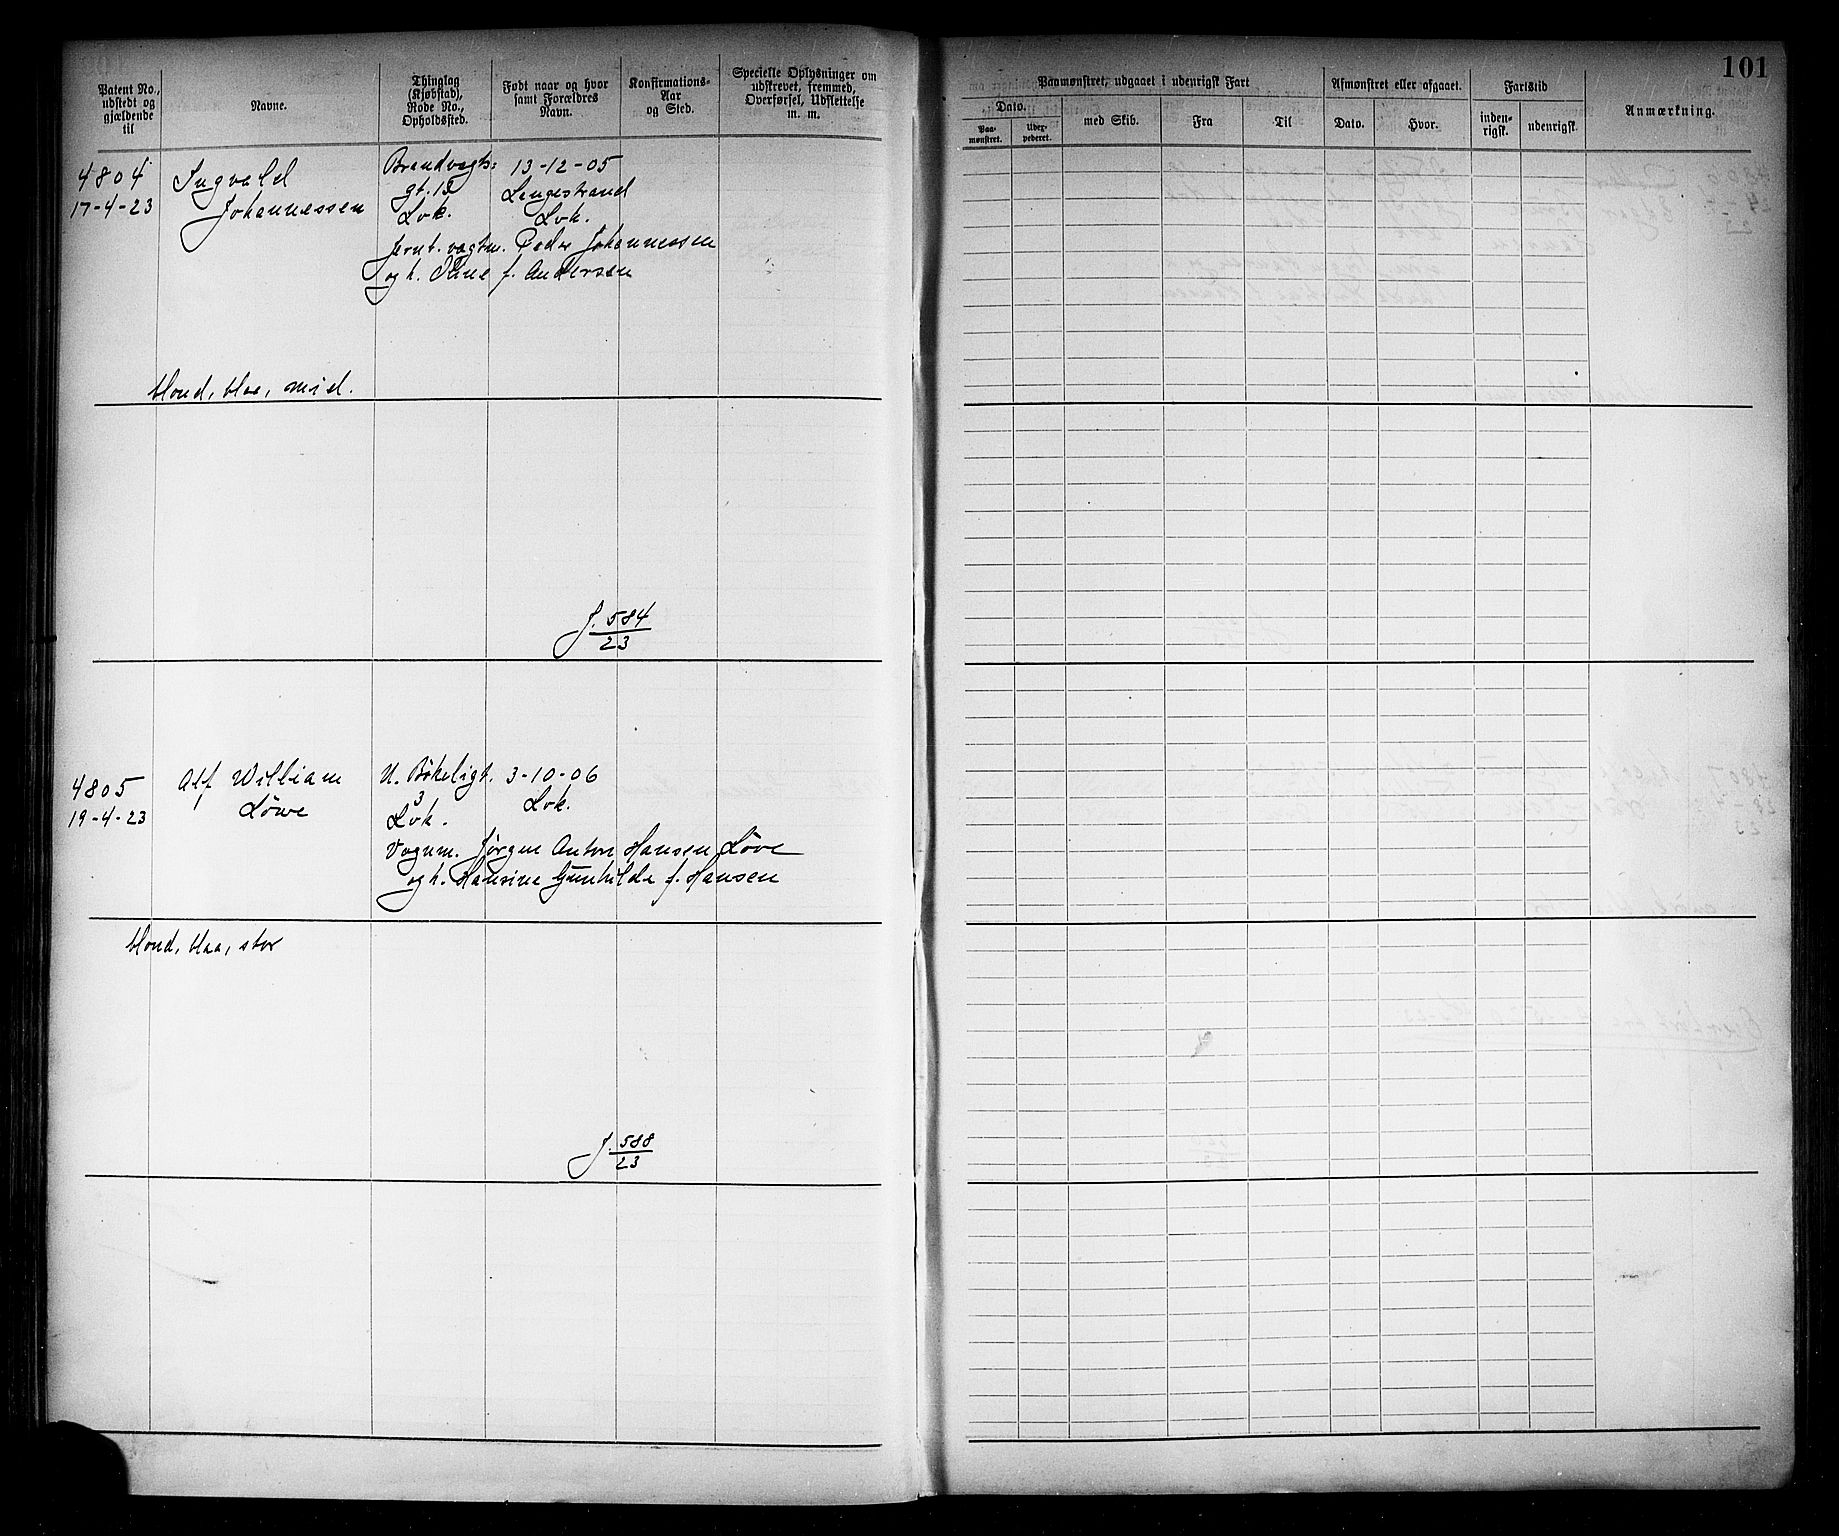 101
Patent No., udstedt og gjældende til
Navne.
Thinglag (Kjøbstad), Rode No., Opholdssted.
Født naar og hvor samt Forældres Navn.
Konfirmations-Aar og Sted.
Specielle Oplysninger om udskrevet, fremmed, Overførsel, Udslettelse m. m.
Paamønstret, udgaaet i udenrigsk Fart
Dato.
Paa-mønstret.
Udex-pederet.
med Skib.
Fra
Til
Afmønstret eller afgaaet.
Dato.
Hvor.
Fartstid
inden-rigsk.
udenrigsk.
Anmærkning.
4804 Ingvald Brandvagts: 13-12-05
17-4-23 Johannessen gt. 15 Langestrand
Lvk. Lvk.
jernb. vagtm. Peder Johannessen
og h. Stine f. Andersen
blond, blaa, mid.
J. 584
23
4805 Alf William N. Bökeligt. 3-10-06
19-4-23 Löwe 3 Lvk.
Lvk.
Vognm. Jörgen Anton Hansen Löve
og h. Hansine Gunhilde f. Hansen
blond, blaa, stor
J. 588
23